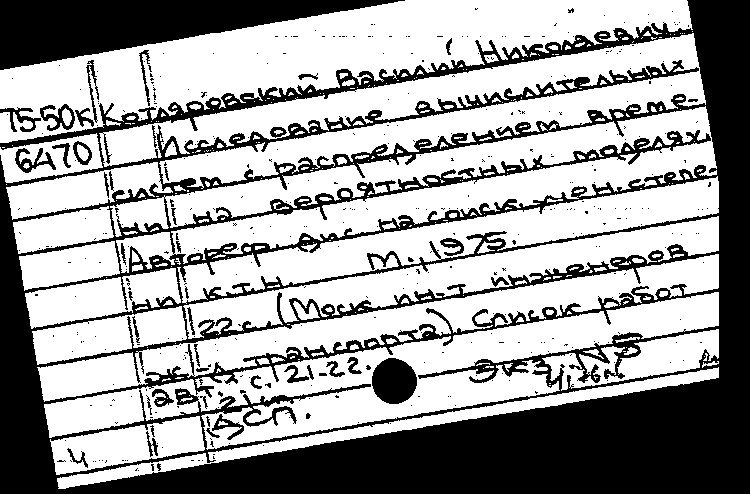 75-50к Котляровский, Василий Николаевич.
6470 Исследование вычислительных
систем с распределением време-
ни на вероятностных моделях.
Автореф. дис на соиск. учен. степе-
ни к.т.н. М., 1975.
22с. (Моск ин-т инженеров
ж.-д. транспорта). Список работ
авт.: с. 21-22.
Экз. N5
ДСП.
ч